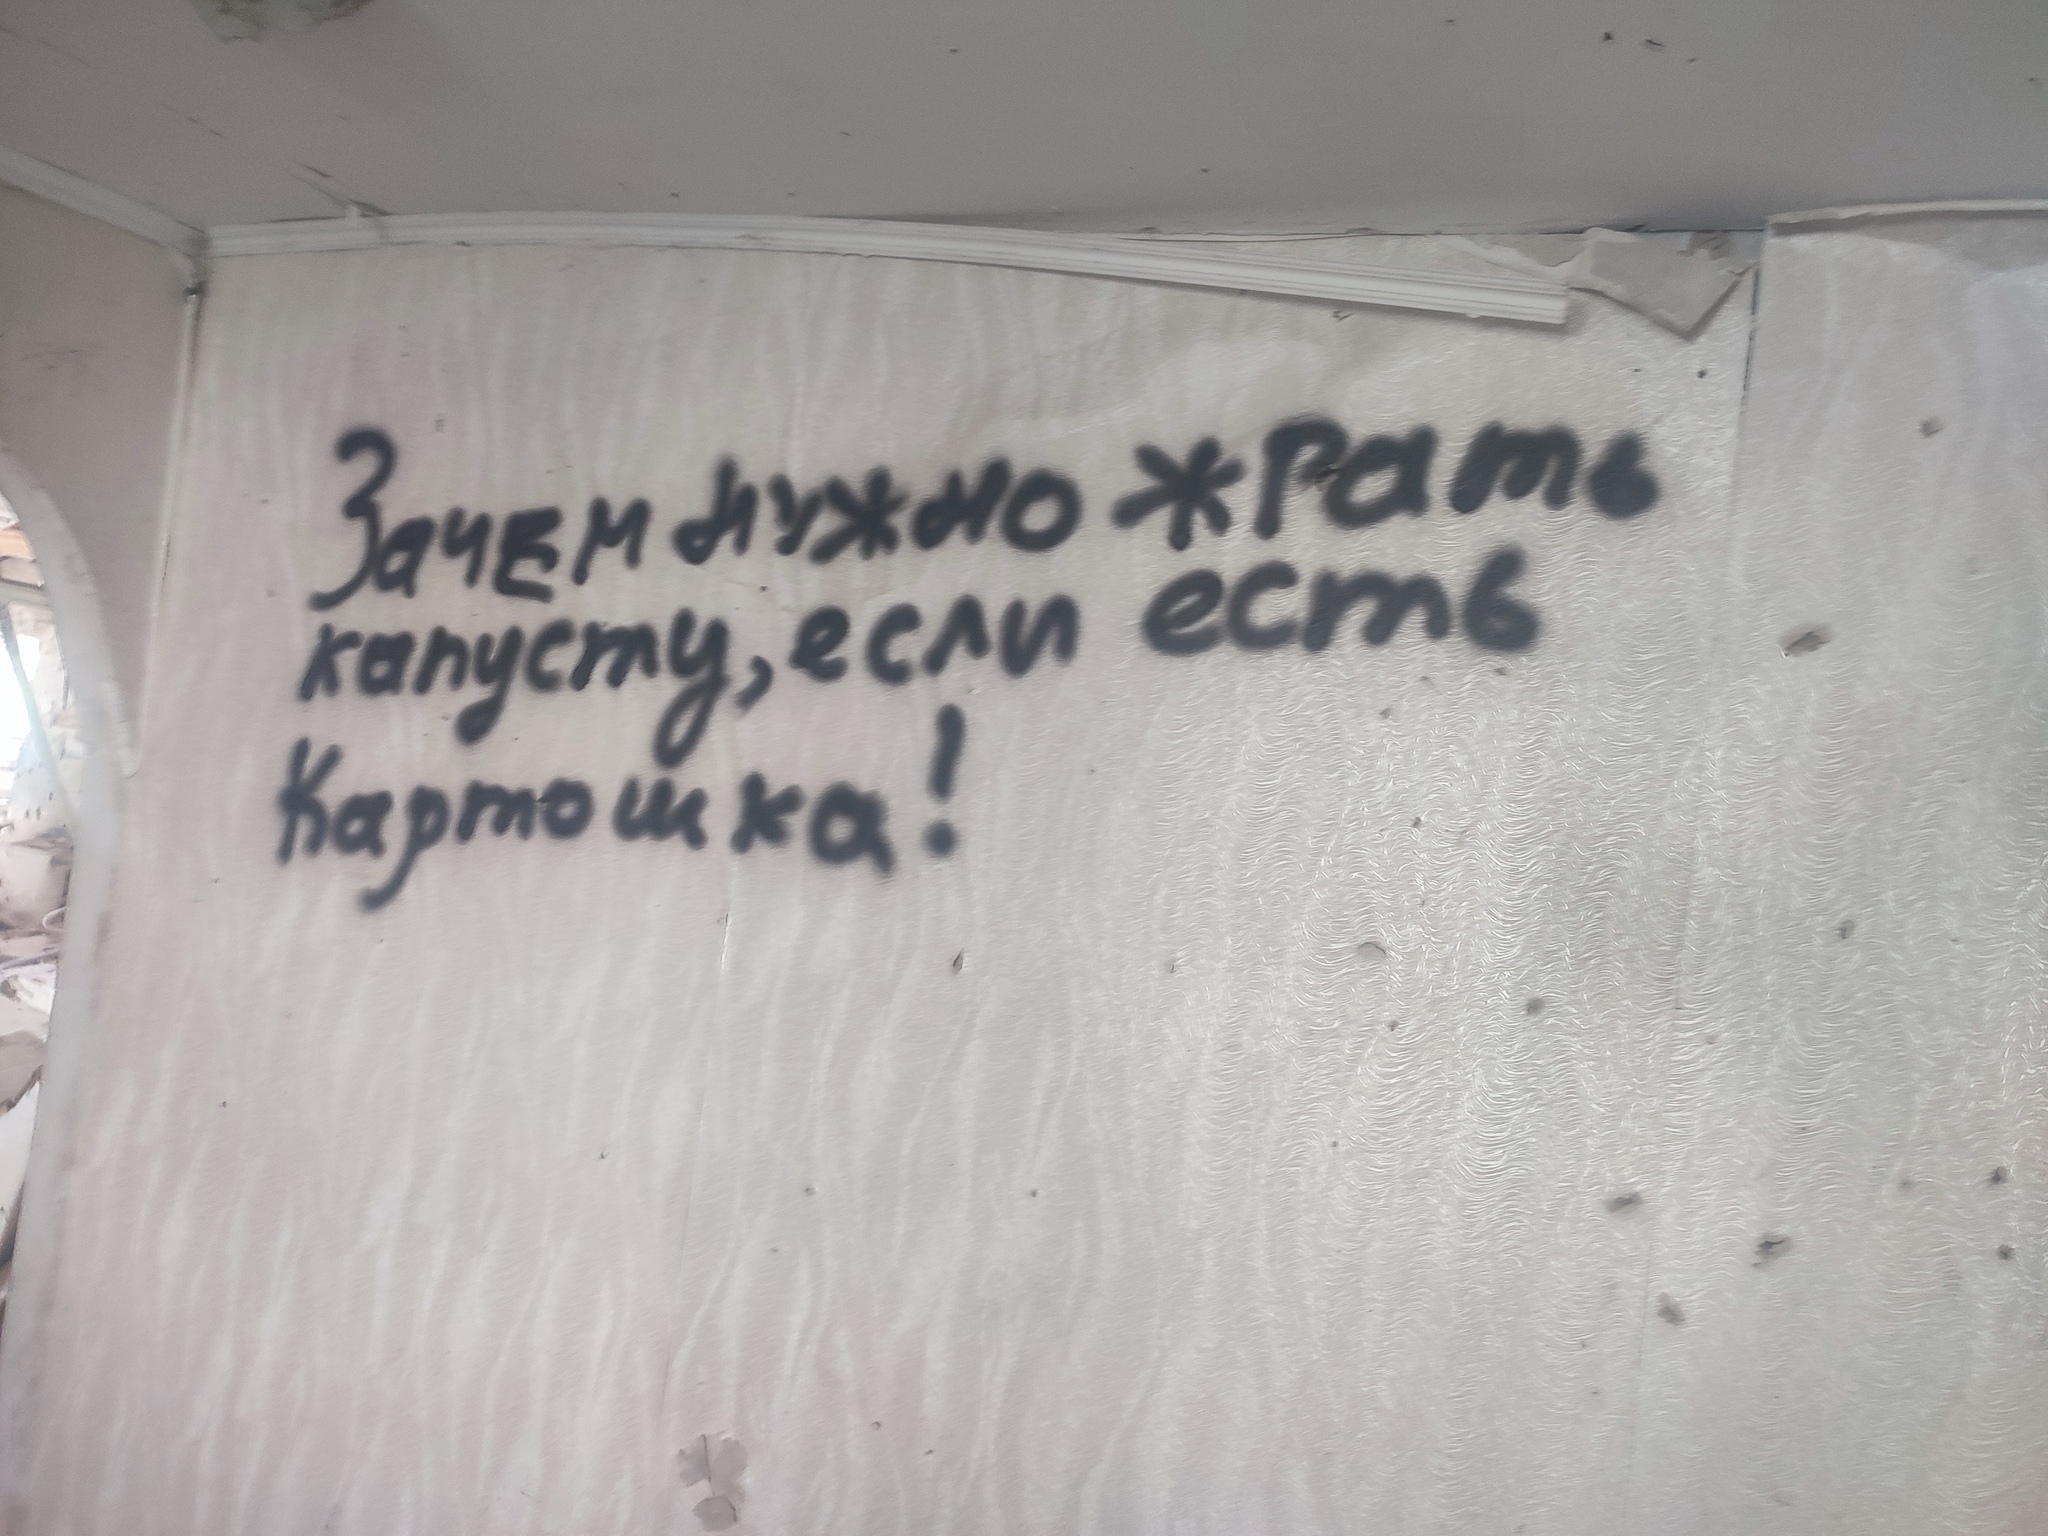 Зачем нужно жрать
капусту, если есть
Картошка!